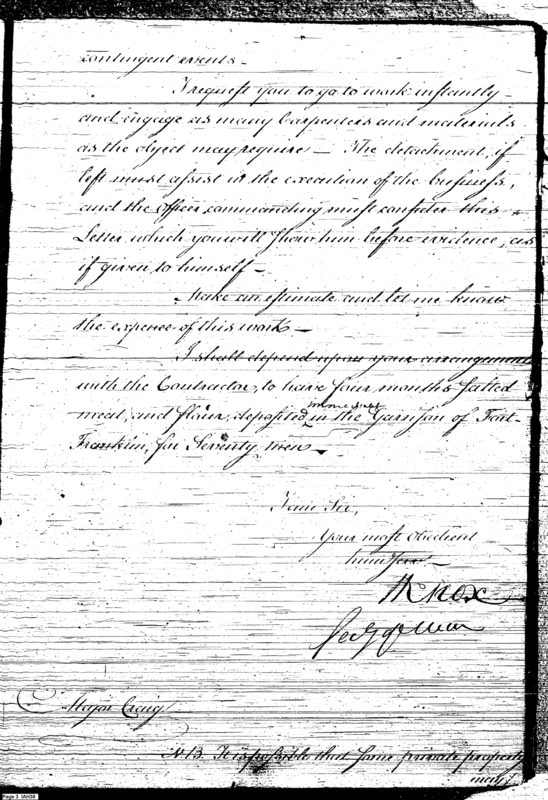 contingent events –
I request you to go to work instantly
and engage as many Carpenters and materials
as the object may require – The detachment, if
left must assist in the execution of the business,
and the officer commanding must consider this
Letter which you will show him before evidence, as
if given to himself –
Make an estimate and let me know
the expence of this work –
I shall depend upon your arrangements
with the Contractor, to have four months salted
immediately
meat, and flour, deposited in the Garrison of Fort
Franklin, for Seventy men –
I am Sir,
Your most obedient
hum Serv
H Knox
Secy of War
Major Craig
N.B. It is possible that some private property
may
Page 3 IAH38